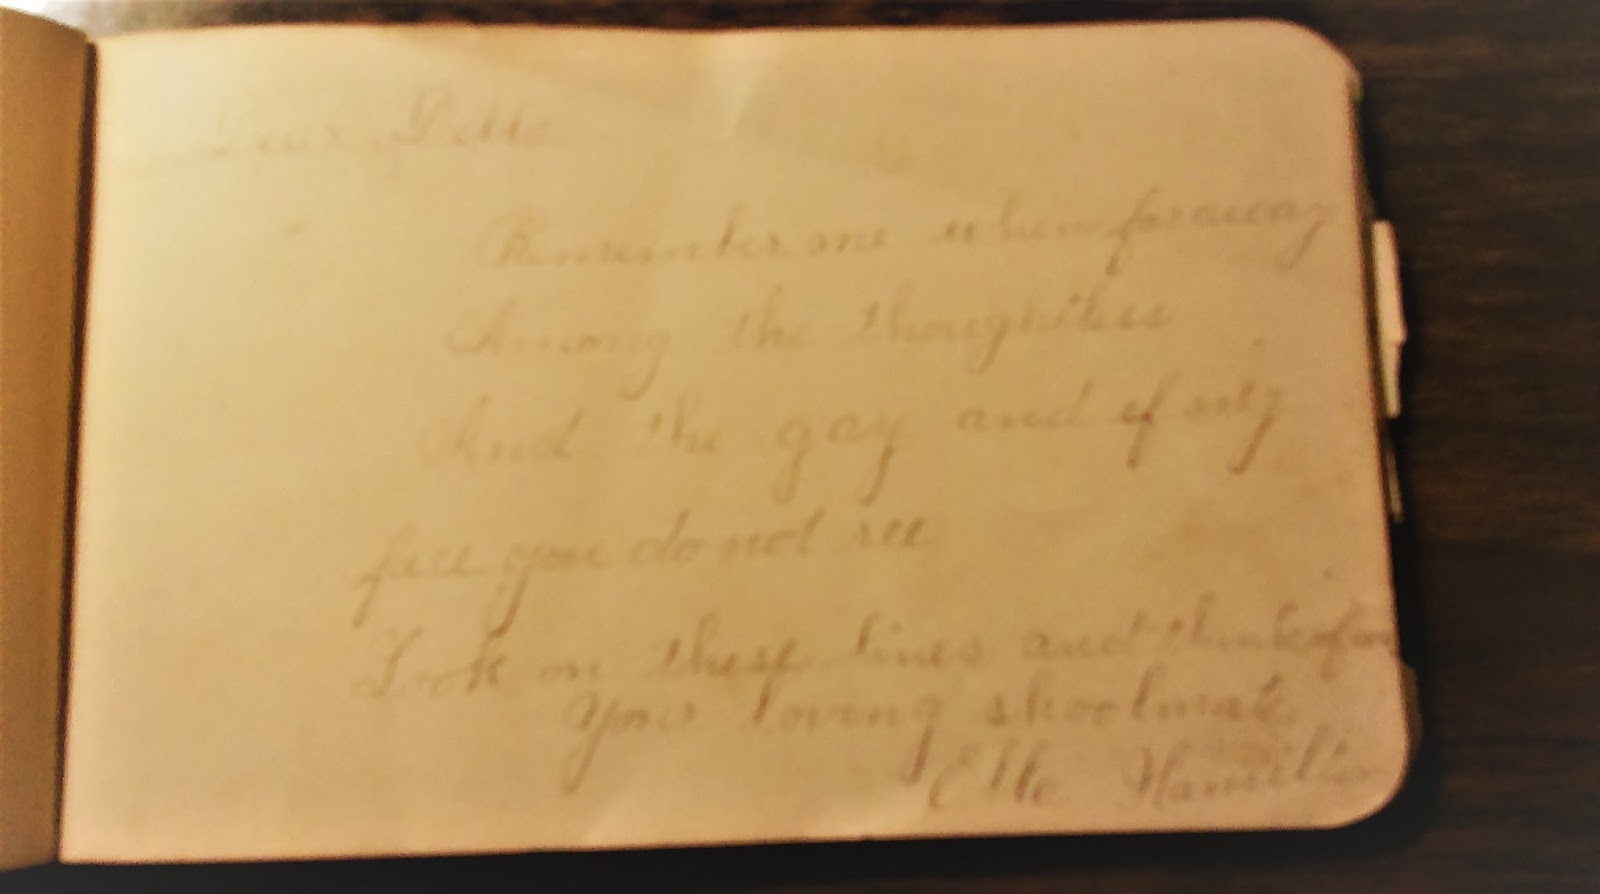 Dear
Remember me when far away
Among the thoughtless
And the gay and if my
face you do not see
Look on these lines and think of me
Your loving shoolmate
Hamilton